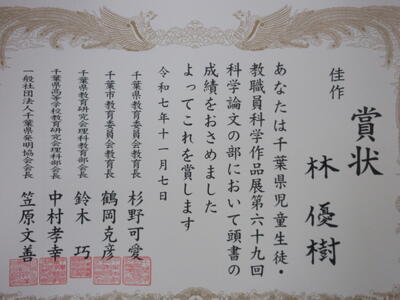 賞状
佳作
林優樹
あなたは千葉県児童生徒・
教職員科学作品展第六十九回
科学論文の部において頭書の
成績をおさめました
よってこれを賞します
令和七年十一月七日
千葉県教育委員会教育長 杉野可愛
千葉市教育委員会教育長 鶴岡克彦
千葉県教育研究会理科教育部会長 鈴木巧
千葉県高等学校教育研究会理科部会長 中村孝幸
一般社団法人千葉県発明協会会長 笠原文善